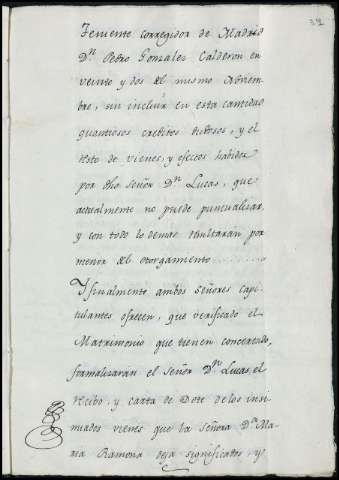 32
Teniente corregidor de Madrid
Dn. Pedro Gonzalez Calderon en
veinte y dos del mismo Noviem-
bre, sin incluir en esta cantidad
quantiosos creditos diversos, y el
resto de vienes, y efectos havidos
por dho Señor Dn. Lucas, que
actualmente no puede puntualizar,
y con todo lo demas resultarán por
menor del otorgamento
Igualmente ambos Señores capi-
tulantes ofrecen, que verificado el
Matrimonio que tienen concertado,
formalizaran el Señor Dn. Lucas, el
recibo, y carta de Dote de los insi-
nuados vienes que la Señora Da. Ma-
ria Ramona deja significados, y